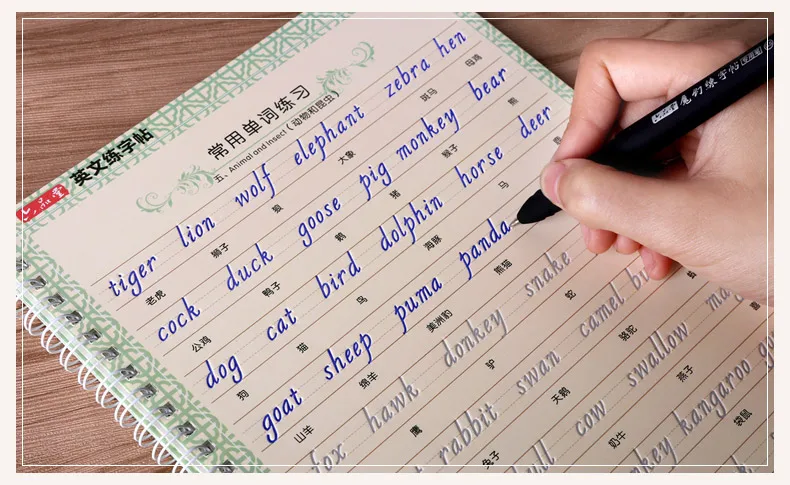 英文练字帖
常用单词练习
五、Animal and insect（动物和昆虫）
tiger lion wolf elephant zebra hen
老虎 狮子 狼 大象 斑马 母鸡
cock duck goose pig monkey bear
公鸡 鸭子 鹅 猪 猴子 熊
dog cat bird dolphin horse deer
狗 猫 鸟 海豚 马
goat sheep puma panda
山羊 绵羊 美洲豹 熊猫
fox hawk donkey snake
鹰 驴 蛇
rabbit swan camel
兔子 天鹅 骆驼
cow swallow
奶牛 燕子
kangaroo
袋鼠
魔幻练字帖